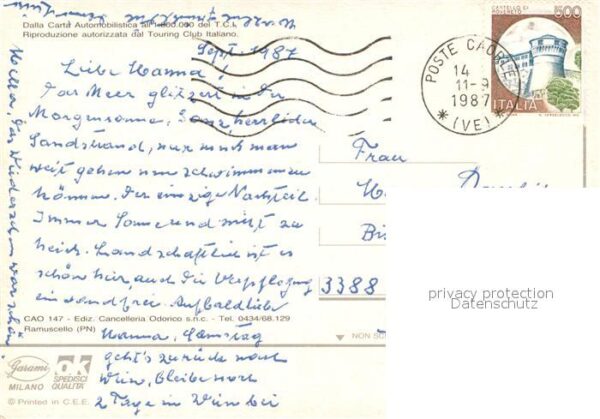 Dalla Carta Automobilistica al 1:800.000 del T.C.I.
Riproduzione autorizzata dal Touring Club Italiano.
Sept. 1987
Liebe Hanna!
Das Meer glitzert in der
Morgensonne, Ganz herrlicher
Sandstrand, nur muss man
weit gehen um schwimmen zu
können. Der einzige Nachteil
Immer Sonne und nicht zu
heiss. Landschaftlich ist es
schön hier, auch die Verpflegung
einwandfrei. Auf bald liebe
Hanna, Samstag
geht's zurück nach
Wien, bleibe noch
2 Tage in Wien bei
war schön.
Frau
H
Bi
3388
POSTE CAORLE
14
11-9
1987
(VE)
CASTELLO DI
ROVERETO
500
ITALIA
privacy protection
Datenschutz
CAO 147 - Ediz. Cancelleria Odorico s.n.c. - Tel. 0434/68.129
Ramuscello (PN)
NON SC
Garami
MILANO
OK
SPEDISCI
QUALITA'
© Printed in C.E.E.